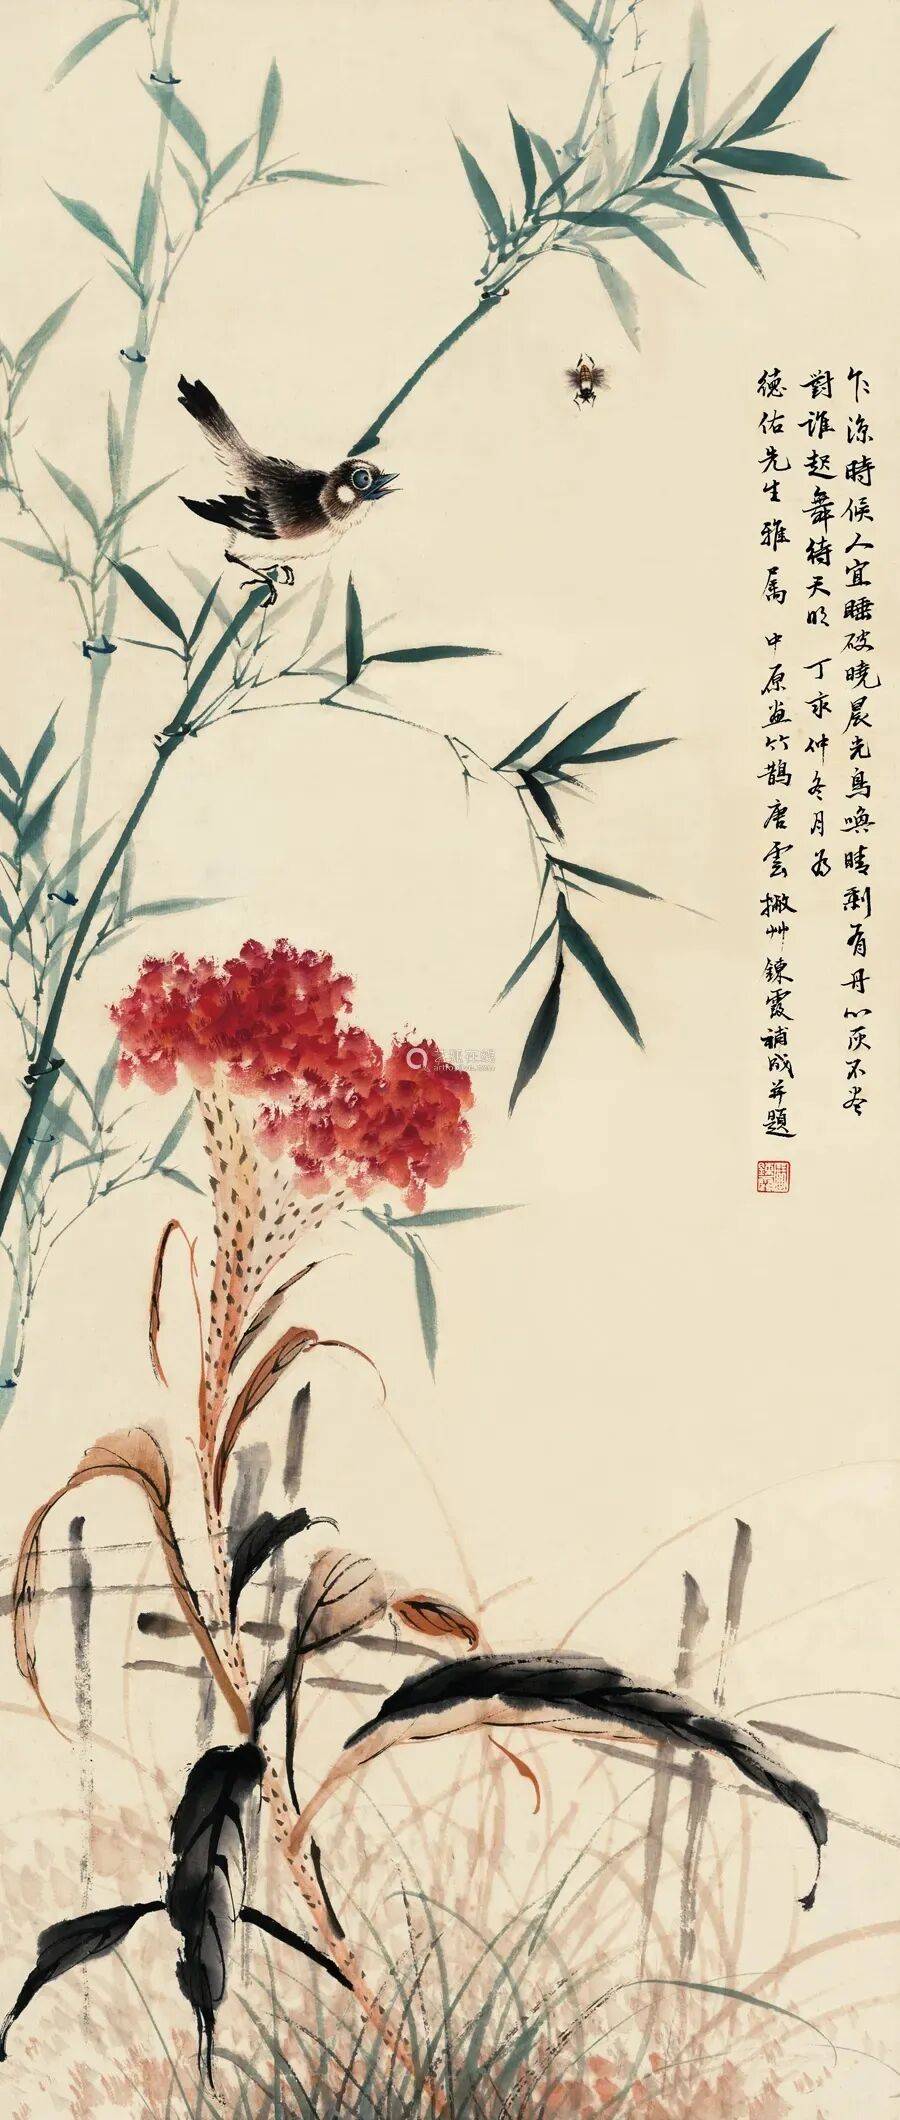 乍涼時候人宜睡破曉晨光鳥喚晴剩有丹心灰不盡
對誰起舞待天明 丁亥仲冬月為
德佑先生雅屬 中原畫竹鵲唐雲撇艸鍊霞補成并題